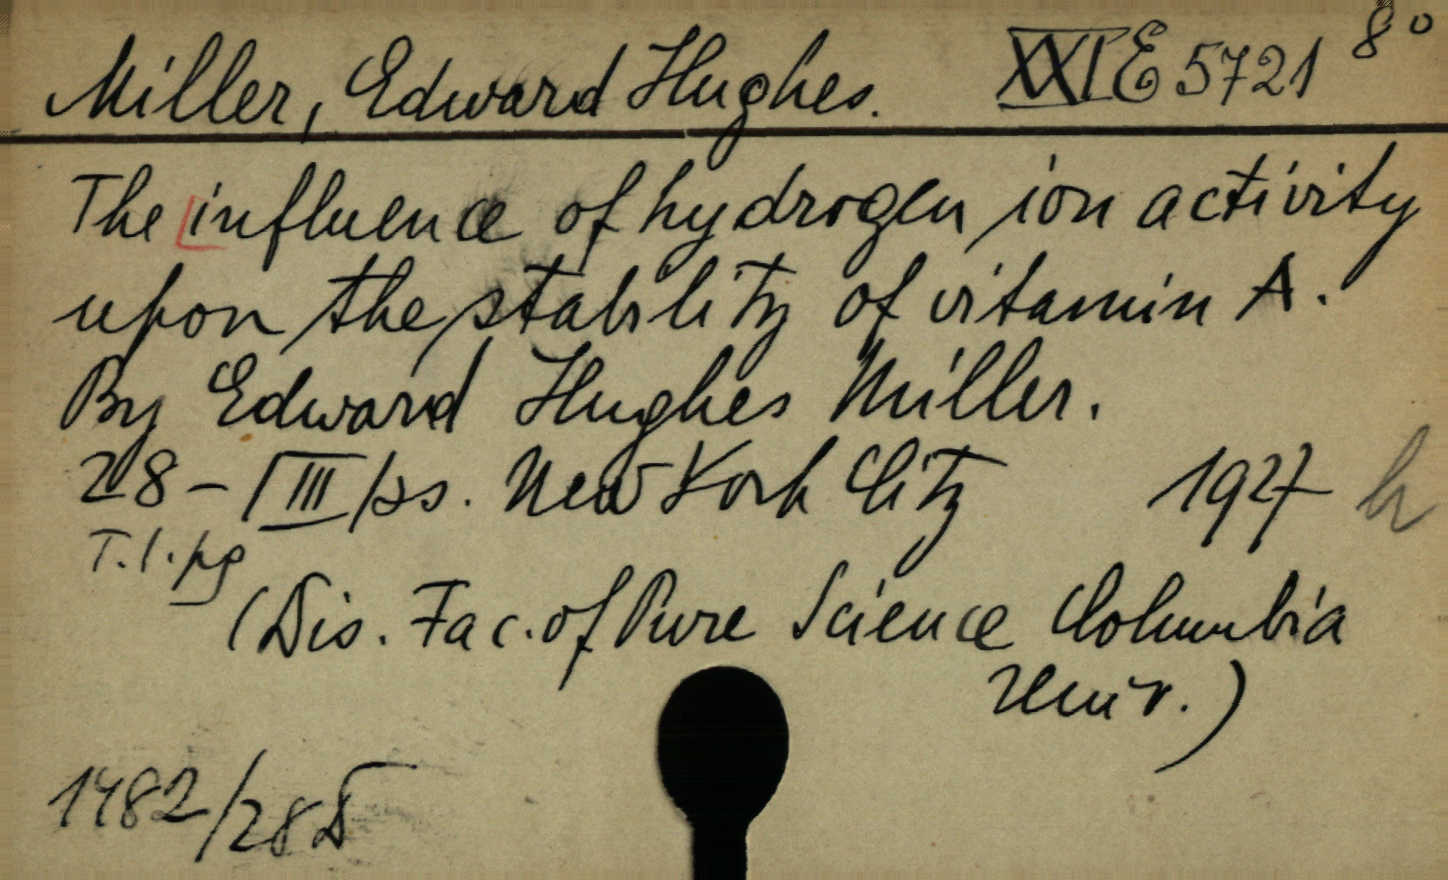 Miller, Edward Hughes. XXI E 5721 8°
The influence of hydrogen ion activity
upon the stability of vitamin A.
By Edward Hughes Miller.
28 - [III] ss. New York City 1927 h
T. 1. pg
(Dis. Fac. of Pure Science Columbia
Univ.)
1482/28 D